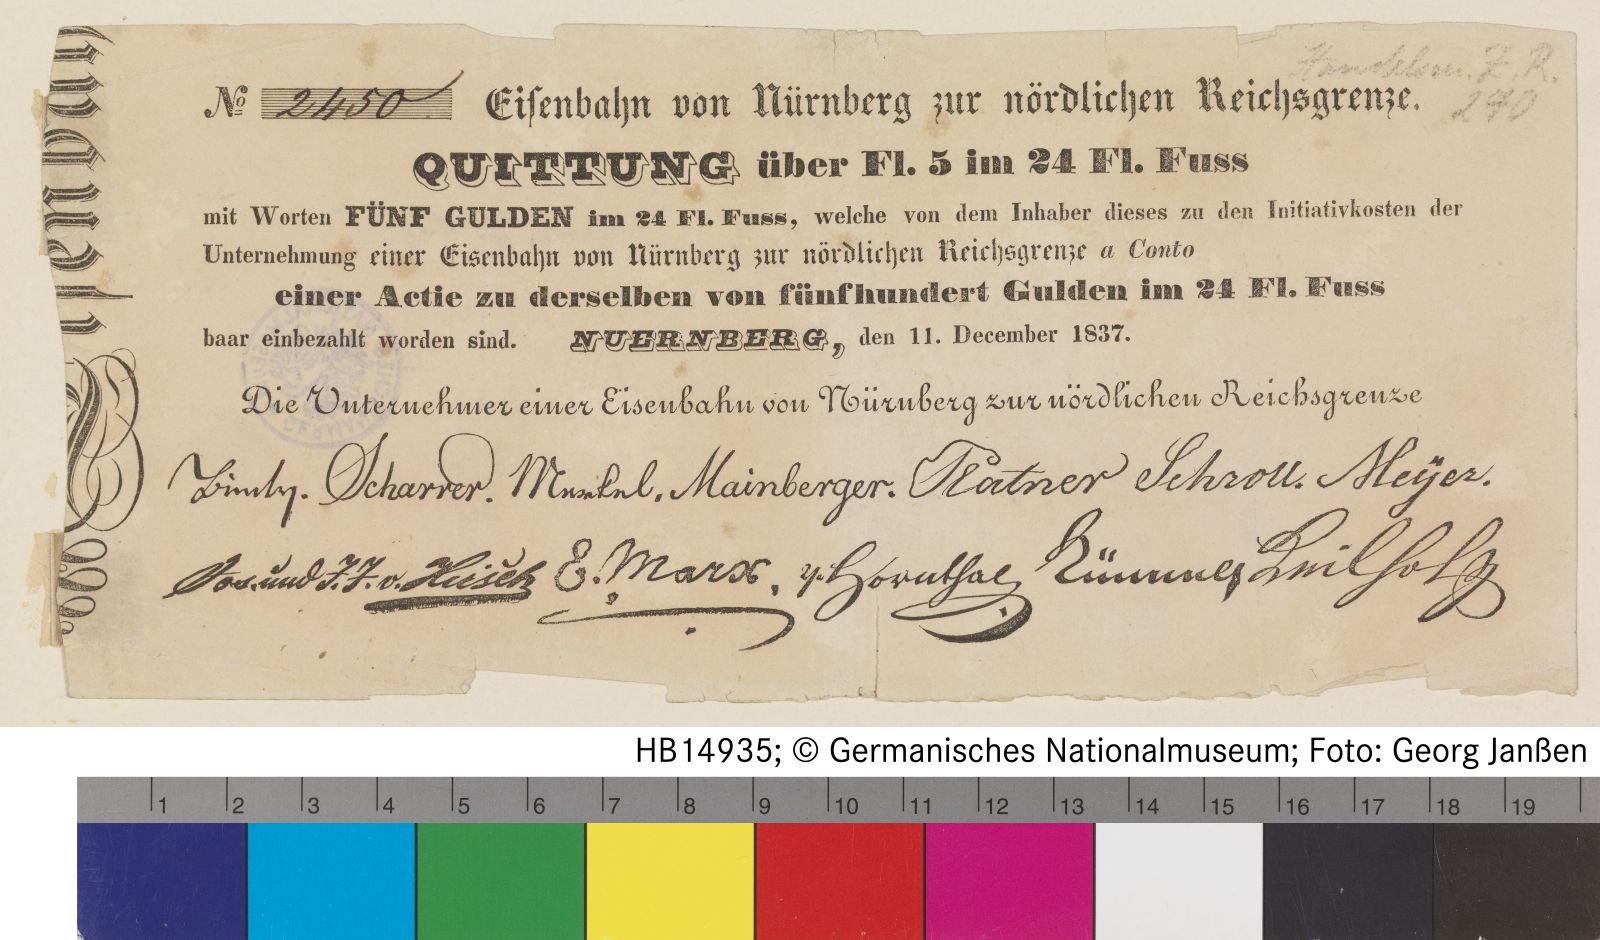 № 2450 Eisenbahn von Nürnberg zur nördlichen Reichsgrenze.
QUITTUNG über Fl. 5 im 24 Fl. Fuss
mit Worten FÜNF GULDEN im 24 Fl. Fuss, welche von dem Inhaber dieses zu den Initiativkosten der
Unternehmung einer Eisenbahn von Nürnberg zur nördlichen Reichsgrenze a Conto
einer Actie zu derselben von fünfhundert Gulden im 24 Fl. Fuss
baar einbezahlt worden sind. NUERNBERG, den 11. December 1837.
Die Unternehmer einer Eisenbahn von Nürnberg zur nördlichen Reichsgrenze
Scharrer. Merkel. Mainberger. Platner Schroll. Meyer.
Jos. und J. J. v. Hirsch E. Marx. v. Hornthal
270
HB14935; © Germanisches Nationalmuseum; Foto: Georg Janßen
1 2 3 4 5 6 7 8 9 10 11 12 13 14 15 16 17 18 19